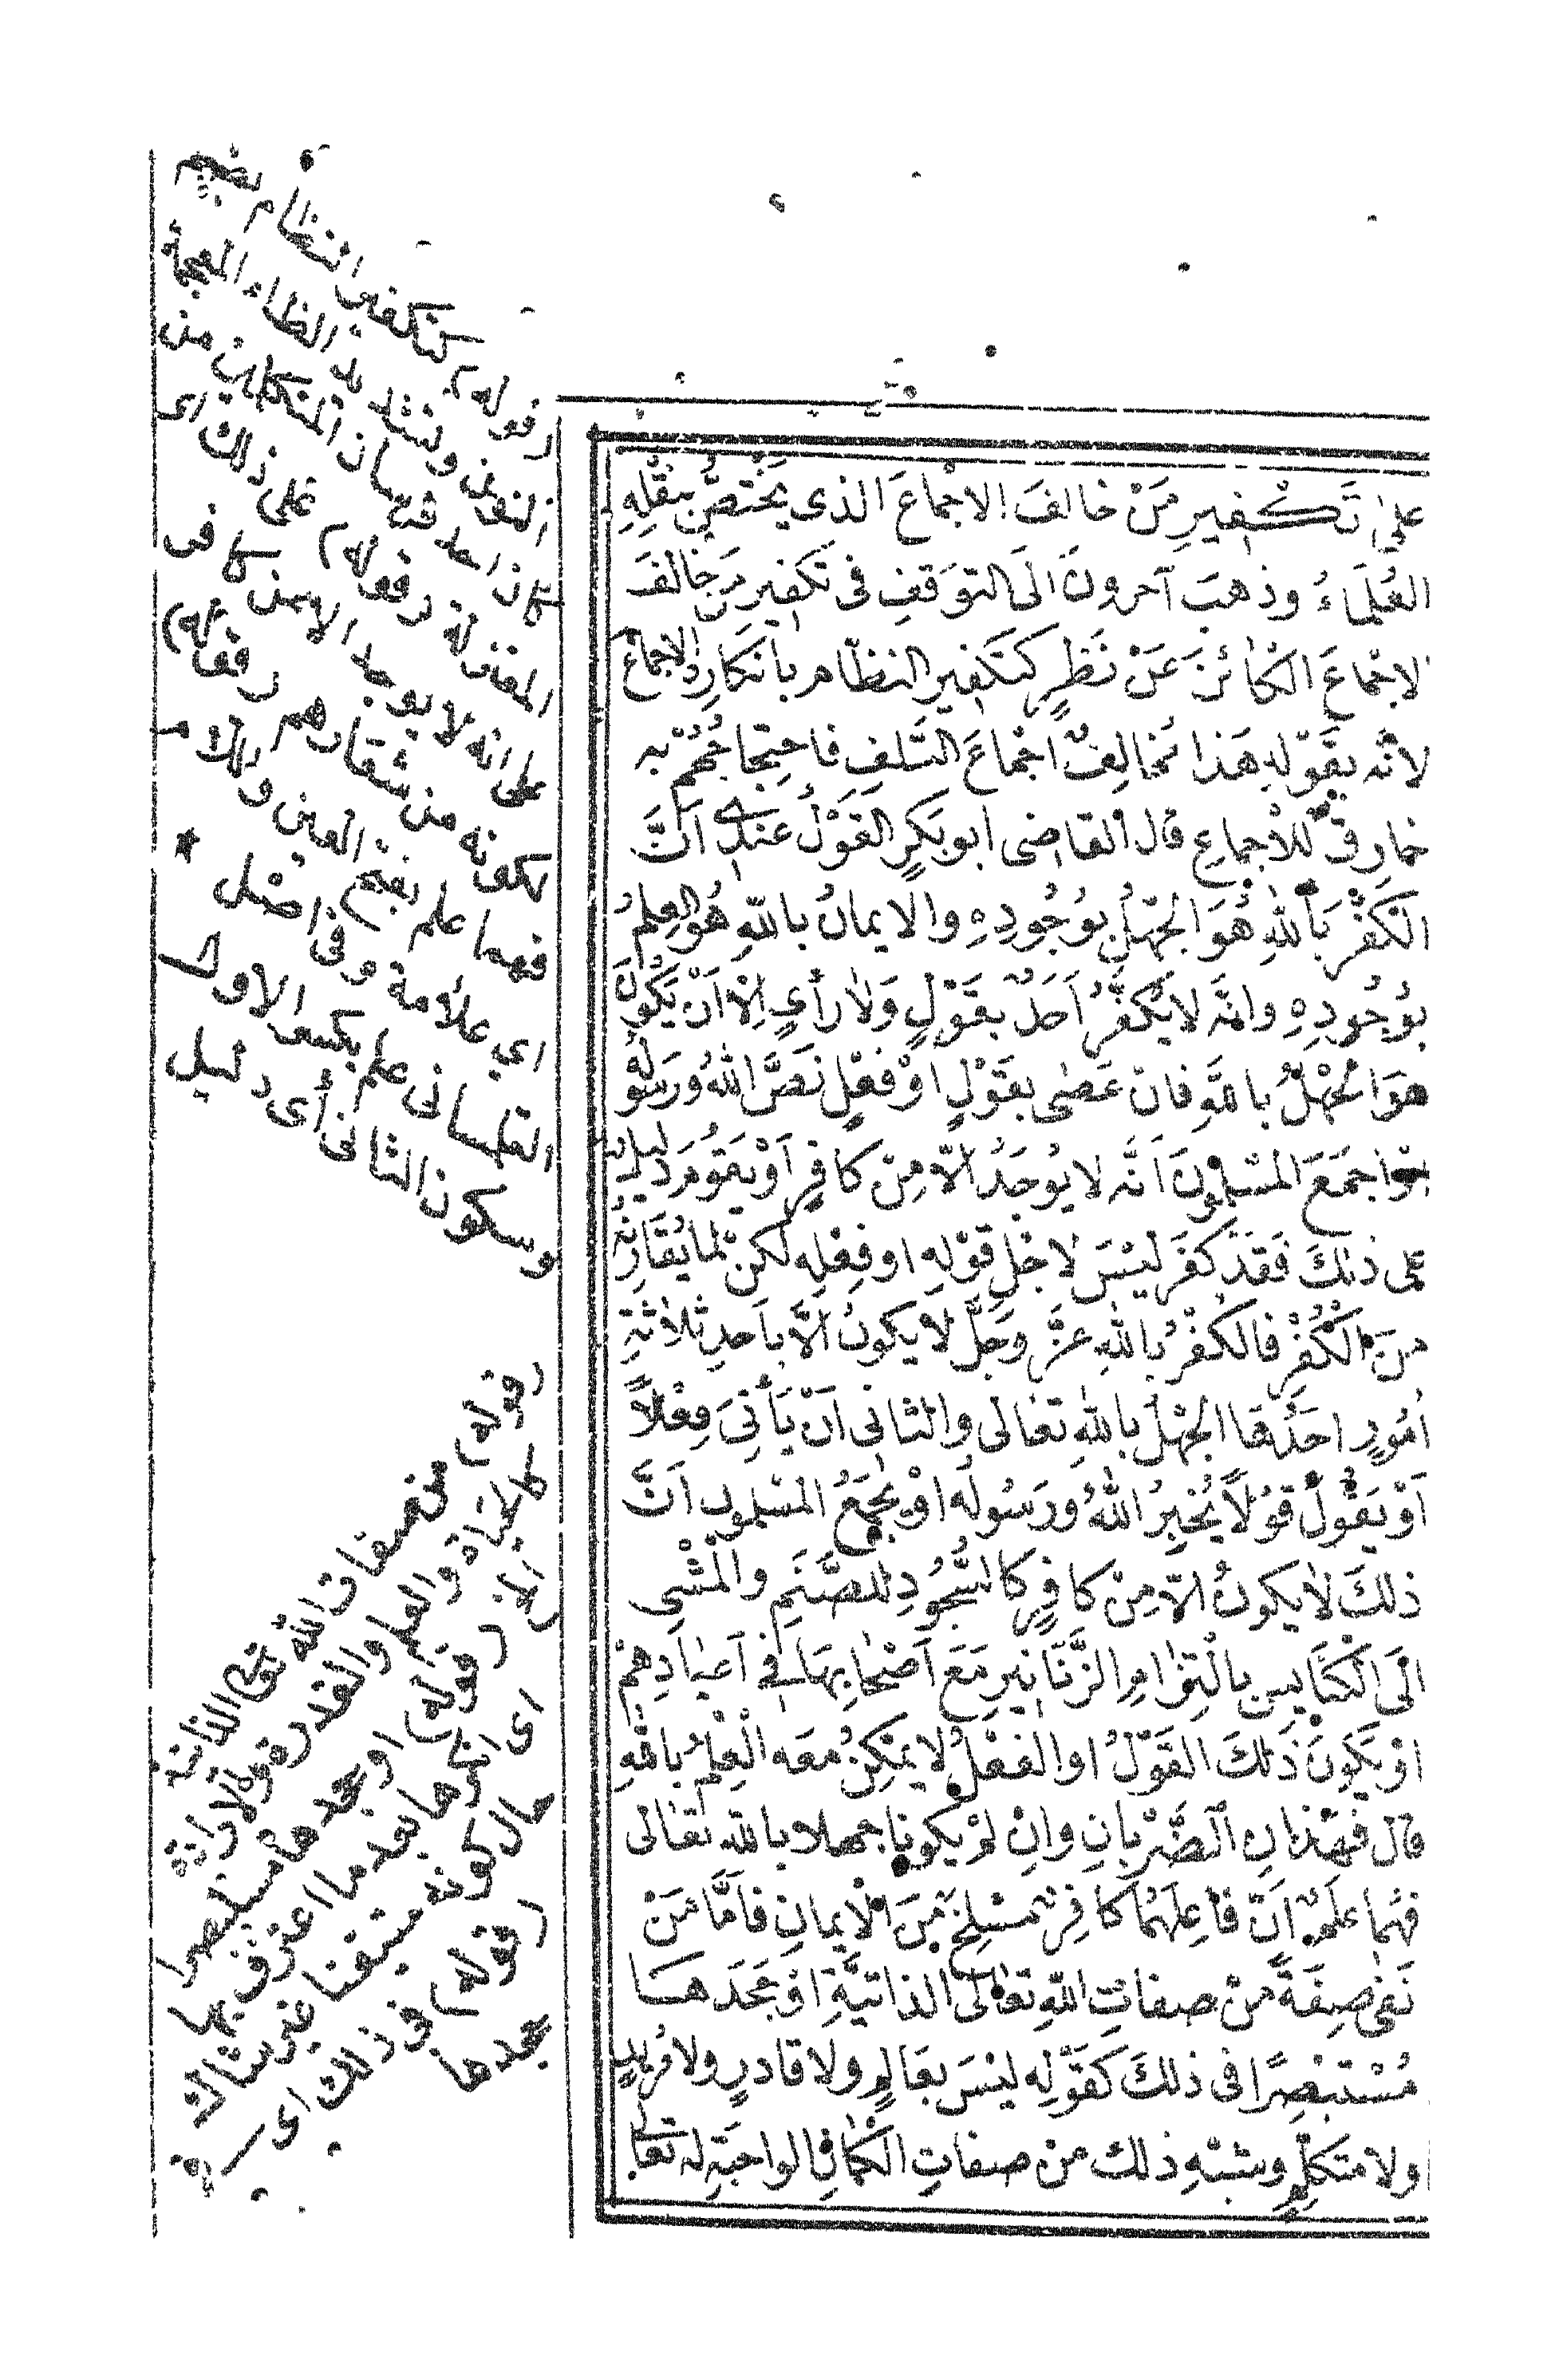 على تَكْفيرِ مَنْ خالفَ الاِجْماعَ الذى يَخْتصُّ بِنَقْلِهِ
العُلماءُ وذهبَ آخرونَ الَى التوَقفِ فى تَكفيرِ مَن خالفَ
الاجْماعَ الكائنَ عَنْ نَظرٍ كَتكفيرِ النظّامِ بانكارِه الاجماعَ
لانّه بقَوْلِهِ هَذا مُخالِفٌ اجْماعَ السَّلفِ فاحتِجاجُهُمْ بهِ
خارقٌ للاْجماعِ قال القاضى ابو بَكرٍ القَوْلُ عندِى انَّ
الكفْرَ باللهِ هُوَ الجَهْلُ بوُجُودِهِ والايمانُ باللهِ هُوَ العِلمُ
بوُجُودِهِ وانّه لا يَكْفُرُ اَحَدٌ بقَوْلٍ وَلا رأىٍ اِلاّ اَنْ يَكُونَ
هوَ الجَهْلُ باللهِ فان عَصٰى بقَوْلٍ اوْ فعْلٍ نصَّ اللهُ ورَسُولُهُ
اوْ اجمَعَ المسْلمونَ اَنّه لا يُوجَدُ الاّ مِنْ كافِرٍ اَوْ يقُومَ دَليلٌ
على ذلكَ فَقدْ كفَرَ ليْسَ لاجْلِ قوْلِهِ او فِعْلِه لكنْ لما يُقَارِنُهُ
منَ الكُفْرِ فالكفْرُ باللهِ عزَّ وَجلَّ لا يكونُ الاَّ باَحدِ ثلاثةِ
اُمُورٍ احَدُها الجهْلُ باللهِ تعالى والثانى اَنْ يَأْتىَ فِعْلاً
اَوْ يَقُولَ قوْلاً يُخْبِرُ اللهُ ورَسُولُه اوْ يجمِعُ المسْلمونَ اَنَّ
ذلكَ لا يكونُ الاّ مِنْ كافِرٍ كالسُّجُودِ للصَّنَمِ والمَشْىِ
الَى الكنَايسِ بالْتِزامِ الزَّنَانيرِ مَعَ اَصْحابِهَا فى اَعيادِهِمْ
اوْ يَكونَ ذَلكَ القَوْلُ او الفعْلُ لا يمْكِنُ معَه العِلْمُ باللهِ
قال فهٰذانِ الضَّرْبانِ وانْ لمْ يكونا جهلا بالله تعَالى
فهُما عَلَمٌ اَنَّ فاعِلَهُما كافِرٌ مُنْسَلِخٌ مِنَ الاْيمانِ فاَمَّا مَنْ
نَفى صِفَةً مِنْ صِفاتِ اللهِ تعَالَى الذاتيَّةِ اوْ جَحَدَهَا
مُسْتَبْصِرًا فى ذلكَ كقَوْلِه ليْسَ بعَالِمٍ ولا قادرٍ ولا مُرِيدٍ
ولا مُتكلِّمٍ وشبْهِ ذلك مِنْ صفاتِ الكمَالِ الواجبَةِ له تعَالى
(قوله كتكفير النظام) بفتح
النون وتشديد الظاء المعجمة
كان احد فتيان المتكلمين من
المعتزلة (قوله على ذلك) اى
على انه لا يوجد الا من كافر
لكونه من شعارهم (قوله
فهما علم) بفتح العين واللام
اى علامة وفى اصل *
التلمسانى علم بكسر الاول
وسكون الثانى أى دليل
(قوله من صفات الله تعالى الذاتية)
كالحياة والعلم والقدرة والارادة
(قوله او جحدها مستبصرا)
اى انكرها بعد ما اعترف بها
حال كونه متيقنا غير شاك
(قوله فى ذلك) اى فى
جحدها